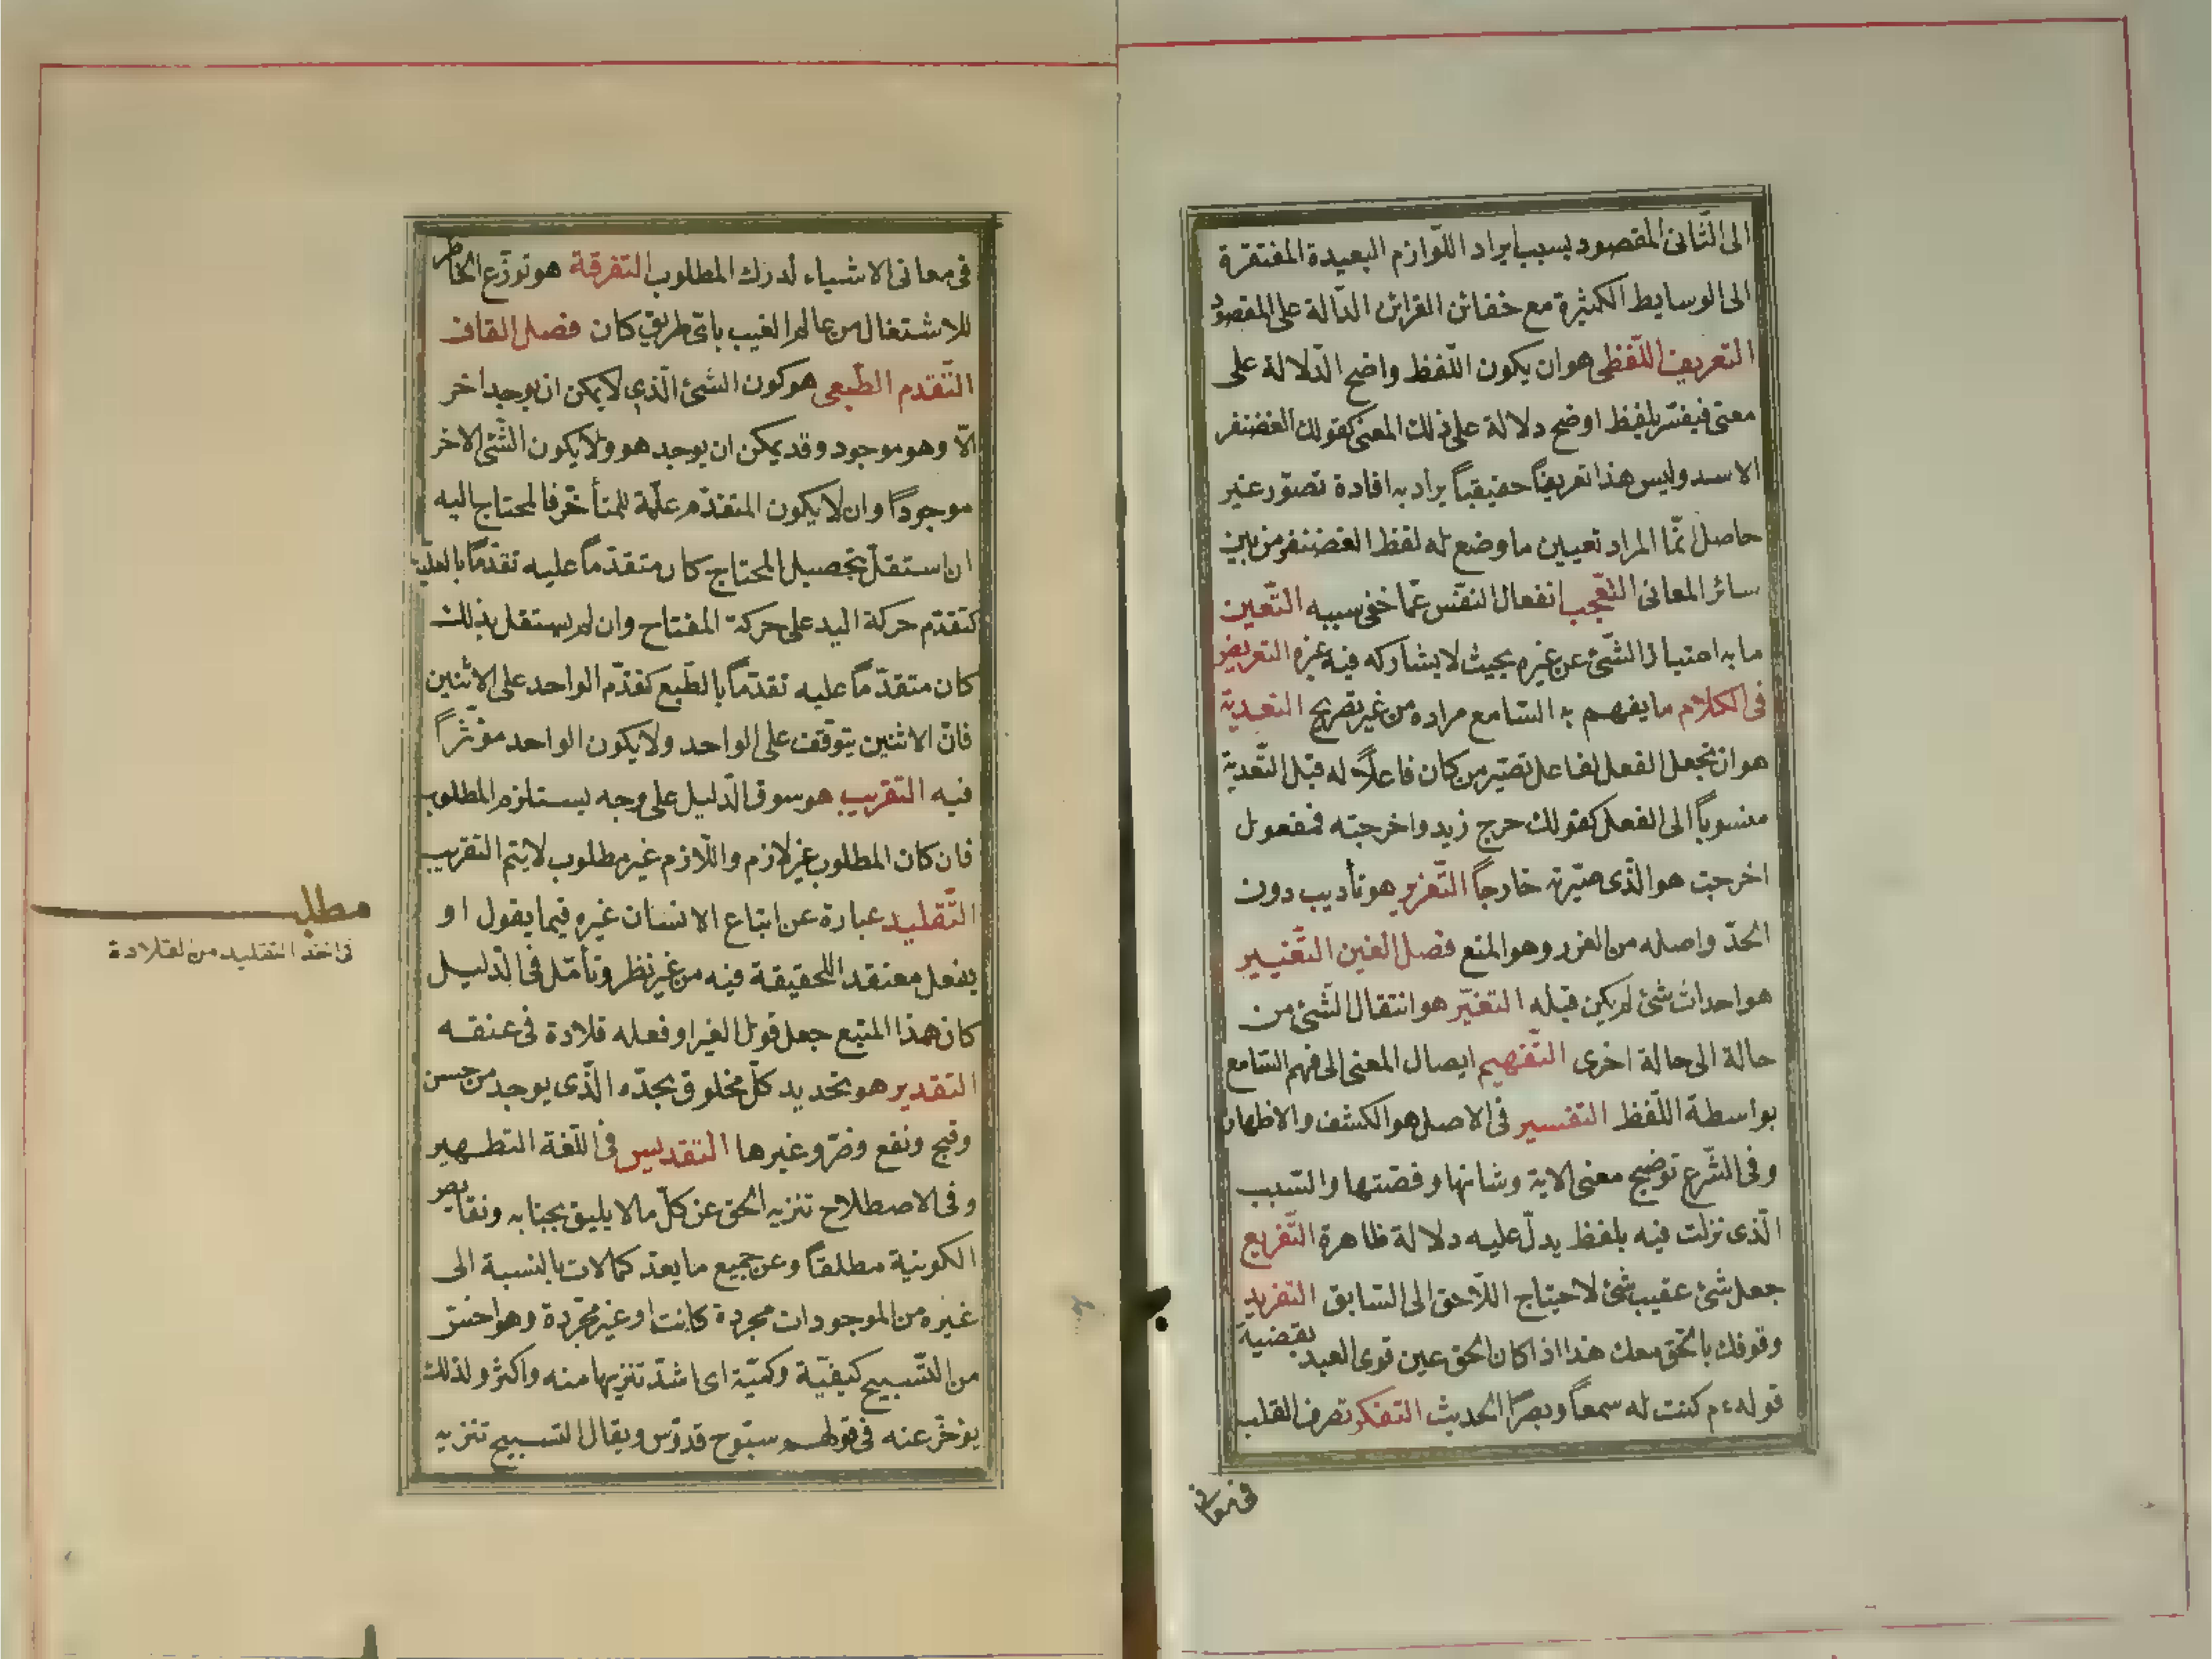 الى الثّانى المقصود بسبب ايراد اللّوازم البعيدة المفتقرة
الى الوسايط الكثيرة مع خفائن القرائن الدّالة على المقصود
التعريف اللّفظى هو ان يكون اللّفظ واضح الدّلالة على
معنى فيفسّر بلفظ اوضح دلالة على ذلك المعنى كقولك الغضنفر
الاسد وليس هذا تعريفاً حقيقياً يراد به افادة تصوّر غير
حاصل انّما المراد تعيين ما وضع له لفظ الغضنفر من بين
سائر المعانى التعّجب انفعال النفّس عمّا خفى سببه التّعين
ما به امتياز الشّئ عن غيره بحيث لا يشاركه فيه غيره التعريض
فى الكلام ما يفهم به السّامع مراده من غير تصريح التعدية
هو ان تجعل الفعل لفاعل تصيّر من كان فاعلاً له قبل التّعدية
منسوباً الى الفعل كقولك خرج زيد واخرجته فمفعول
اخرجت هو الّذى صيّرته خارجاً التّعزير هو تأديب دون
الحدّ واصله من العزر وهو المنع فصل الغين التّغيير
هو احداث شئ لم يكن قبله التغيّر هو انتقال الشّئ من
حالة الى حالة اخرى التّفهيم ايصال المعنى الى فهم السّامع
بواسطة اللّفظ التفسير فى الاصل هو الكشف والاظهار
وفى الشّرع توضيح معنى الاية وشانها وقصّتها والسّبب
الّذى نزلت فيه بلفظ يدلّ عليه دلالة ظاهرة التّفريع
جعل شئ عقيب شئ لاحتياج اللّاحق الى السّابق التفريد
وقوفك بالحّق معك هذا اذا كان الحق عين قوى العبد بقضية
قوله ءم كنت له سمعاً وبصراً الحديث التفكر تصرف القلب
فى معانى
فى معانى الاشياء لدرك المطلوب التفرقة هو توزّع الخاطر
للاشتغال من عالم الغيب باىّ طريق كان فصل القاف
التّقدم الطّبعى هو كون الشئ الّذى لا يمكن ان يوجد اخر
الّا وهو موجود وقد يمكن ان يوجد هو ولا يكون الشّئ الاخر
موجوداً وان لا يكون المتقدّم علّة للمتأخّر فالمحتاج اليه
ان استقلّ بتحصيل المحتاج كان متقدّماً عليه تقدّماً بالعليّة
كتقدّم حركة اليد على حركة المفتاح وان لم يستقل بذلك
كان متقدّماً عليه تقدّماً بالطّبع كتقدّم الواحد على الاثنين
فانّ الاثنين يتوقّف على الواحد ولا يكون الواحد مؤثّراً
فيه التّقريب هو سوق الدّليل على وجه يستلزم المطلوب
فان كان المطلوب غير لازم واللّازم غير مطلوب لا يتم التقريب
التّقليد عبارة عن اتباع الانسان غيره فيما يقول او
يفعل معتقد اللحقيقة فيه من غير نظر وتأمّل فى الدّليل
كان هذا المتبع جعل قول الغير او فعله قلادة فى عنقه
التقدير هو تحديد كلّ مخلوق بحدّه الّذى يوجد من حسن
وقبح ونفع وضرّ وغيرها التقديس فى اللّغة التطهير
وفى الاصطلاح تنزيه الحق عن كلّ ما لا يليق بجنابه ونقايص
الكونية مطلقاً وعن جميع ما يعدّ كمالات بالنّسبة الى
غيره من الموجودات مجردة كانت او غير مجرّدة وهو اخصّ
من التّسبيح كيفيّة وكميّة اى اشدّ تنزيها منه واكثر ولذلك
يؤخّر عنه فى قولهم سبّوح قدّوس ويقال التسبيح تنزيه
مطلب
فى اخذ التقليد من القلادة